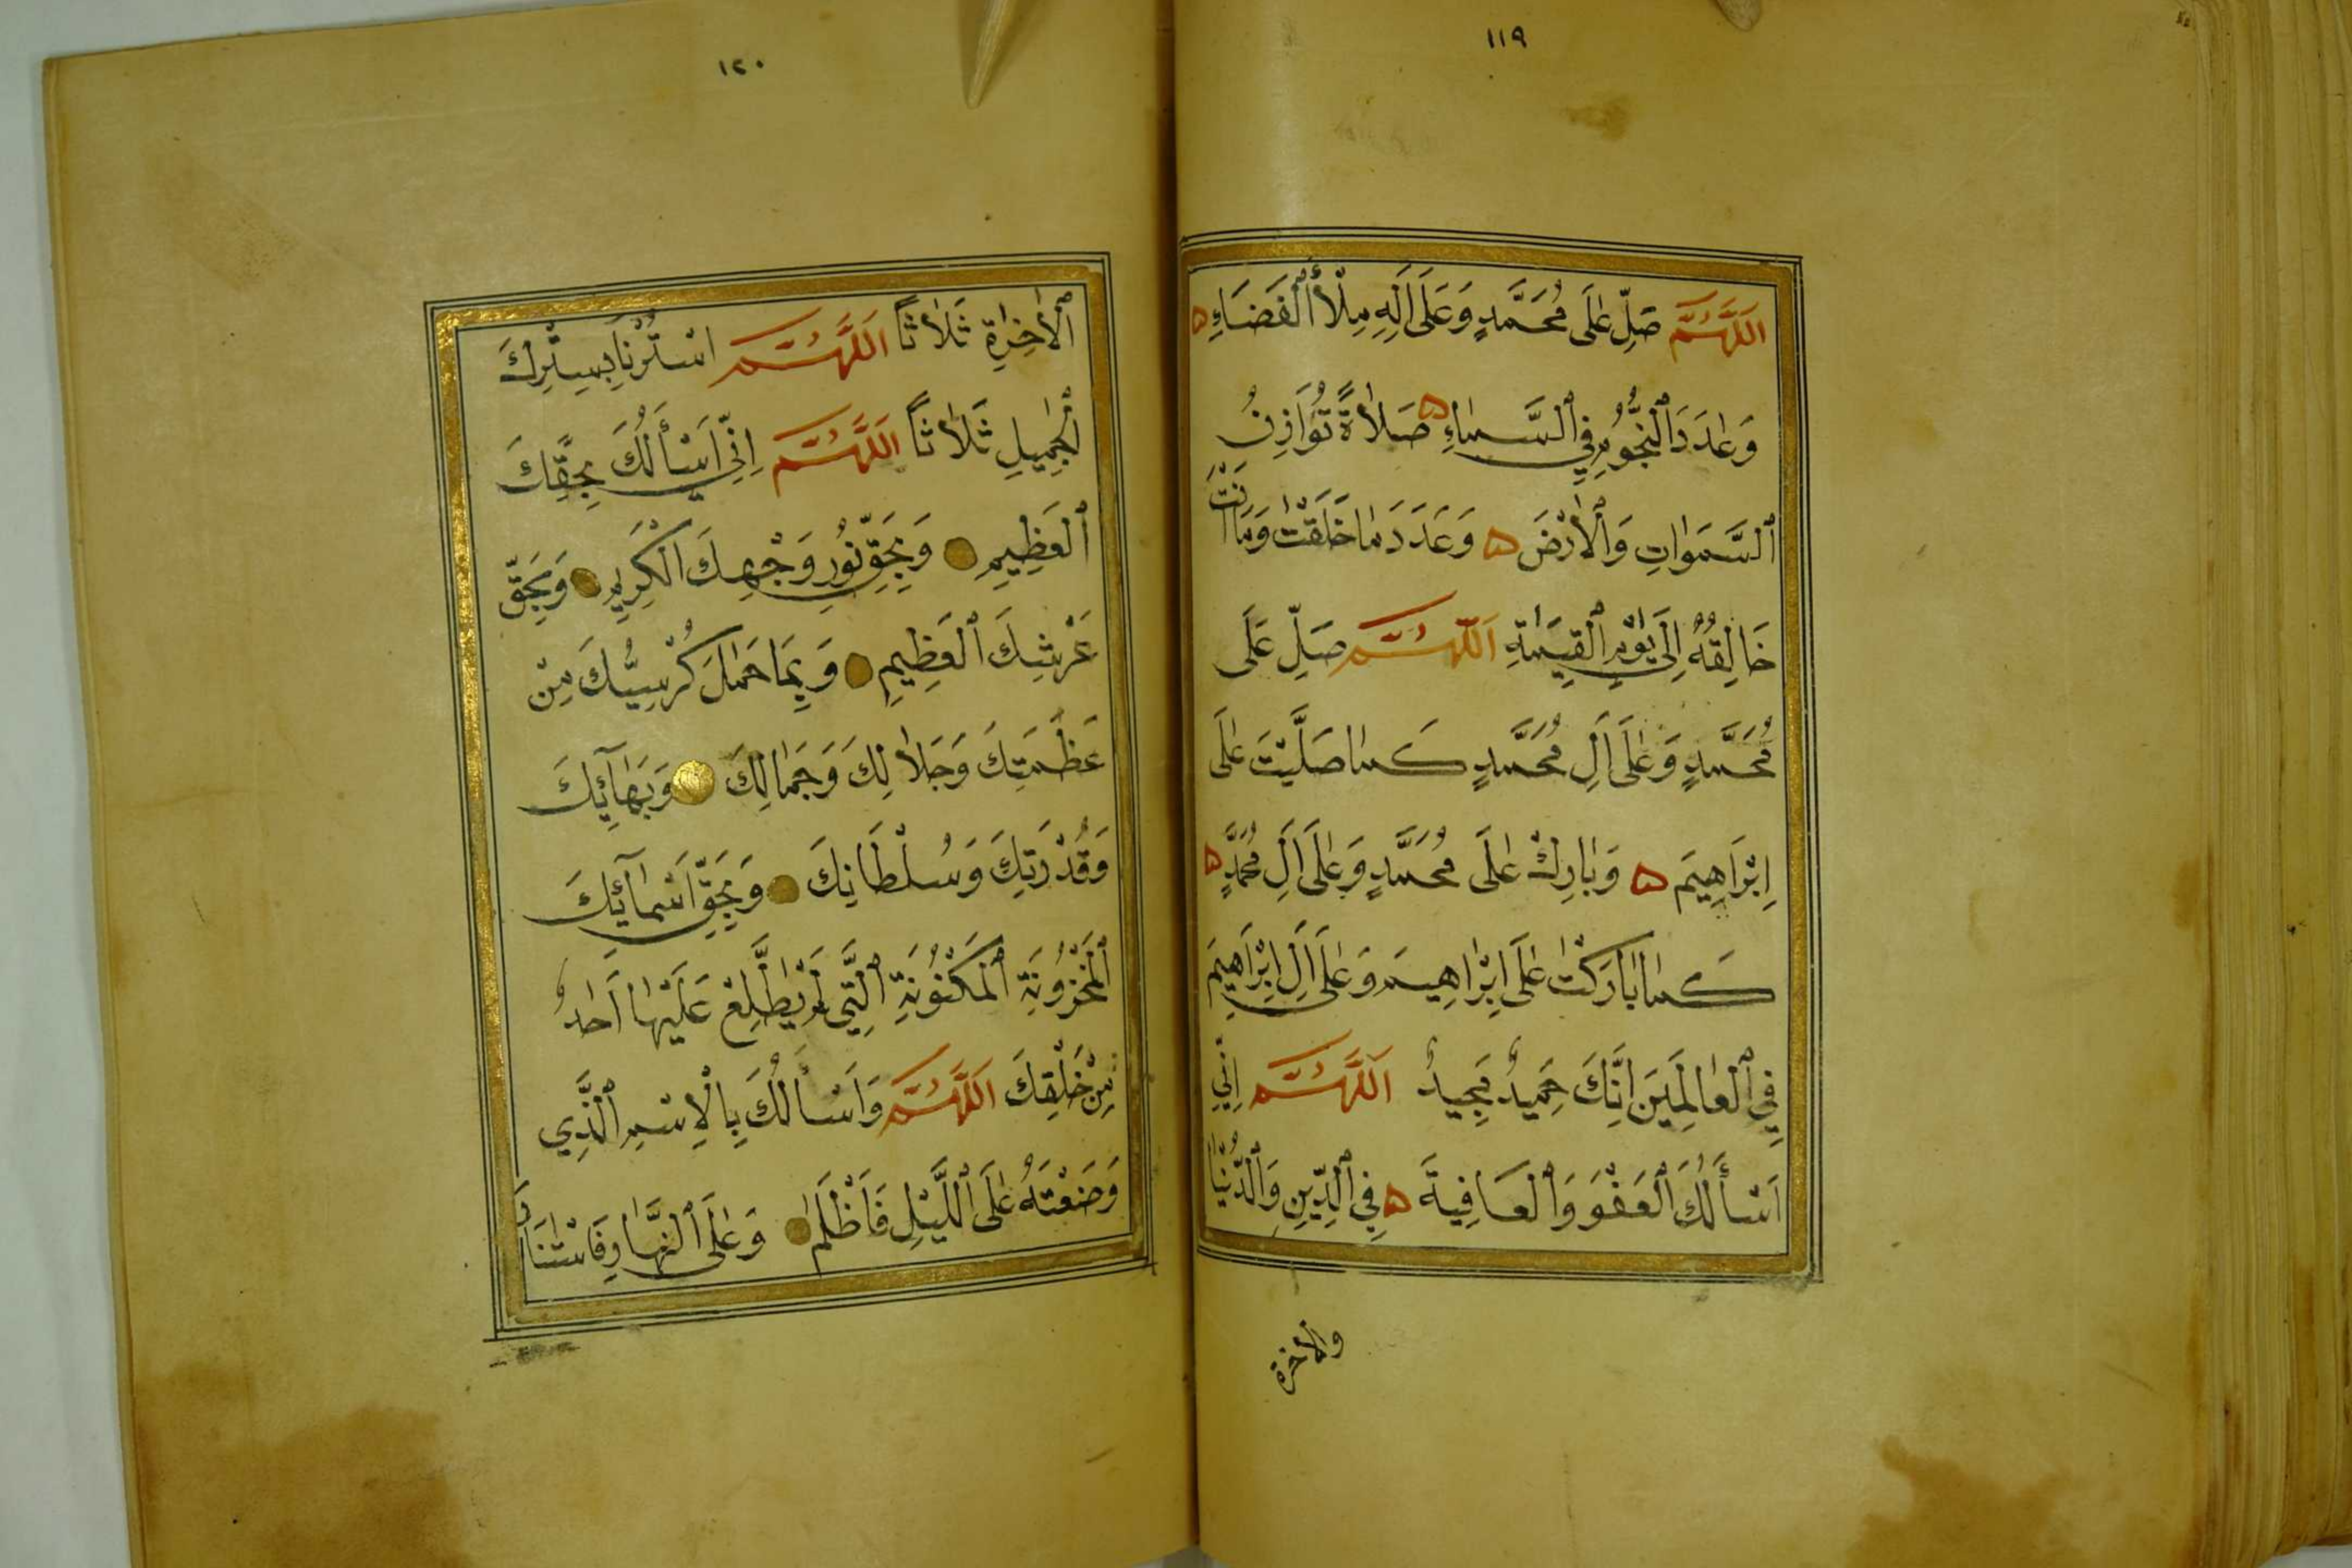 ١١٩
اَللَّهُمَّ صَلِّ عَلَى مُحَمَّدٍ وَعَلَى اٰلِهِ مِلْأَ ٱلْفَضَاءِ
وَعَدَدَ ٱلنُّجُومِ فِي ٱلسَّمَاءِ صَلَاةً تُوَازِنُ
ٱلسَّمَوَاتِ وَٱلْأَرْضَ وَعَدَدَ مَا خَلَقْتَ وَمَا اَنْتَ
خَالِقُهُ اِلَى يَوْمِ ٱلْقِيَمَةِ اَللَّهُمَّ صَلِّ عَلَى
مُحَمَّدٍ وَعَلَى اٰلِ مُحَمَّدٍ كَمَا صَلَّيْتَ عَلَى
اِبْرَاهِيمَ وَبَارِكْ عَلَى مُحَمَّدٍ وَعَلَى اٰلِ مُحَمَّدٍ
كَمَا بَارَكْتَ عَلَى اِبْرَاهِيمَ وَعَلَى اٰلِ اِبْرَاهِيمَ
فِي ٱلْعَالَمِينَ اِنَّكَ حَمِيدٌ مَجِيدٌ اَللَّهُمَّ اِنِّي
اَسْأَلُكَ ٱلْعَفْوَ وَٱلْعَافِيَةَ فِي ٱلدِّينِ وَٱلدُّنْيَا
والاخرة
١٢٠
ٱلْاٰخِرَةِ ثَلَاثًا اَللَّهُمَّ اسْتُرْنَا بِسِتْرِكَ
ٱلْجَمِيلِ ثَلَاثًا اَللَّهُمَّ اِنِّي اَسْأَلُكَ بِحَقِّكَ
ٱلْعَظِيمِ وَبِحَقِّ نُورِ وَجْهِكَ الْكَرِيمِ وَبِحَقِّ
عَرْشِكَ ٱلْعَظِيمِ وَبِمَا حَمَلَ كُرْسِيُّكَ مِنْ
عَظَمَتِكَ وَجَلَالِكَ وَجَمَالِكَ وَبَهَآئِكَ
وَقُدْرَتِكَ وَسُلْطَانِكَ وَبِحَقِّ اَسْمَآئِكَ
ٱلْمَخْزُونَةِ ٱلْمَكْنُونَةِ ٱلَّتِي لَمْ يَطَّلِعْ عَلَيْهَا اَحَدٌ
مِنْ خَلْقِكَ اَللَّهُمَّ وَاَسْأَلُكَ بِالْاِسْمِ ٱلَّذِي
وَضَعْتَهُ عَلَى ٱللَّيْلِ فَاَظْلَمَ وَعَلَى ٱلنَّهَارِ فَاسْتَنَارَ